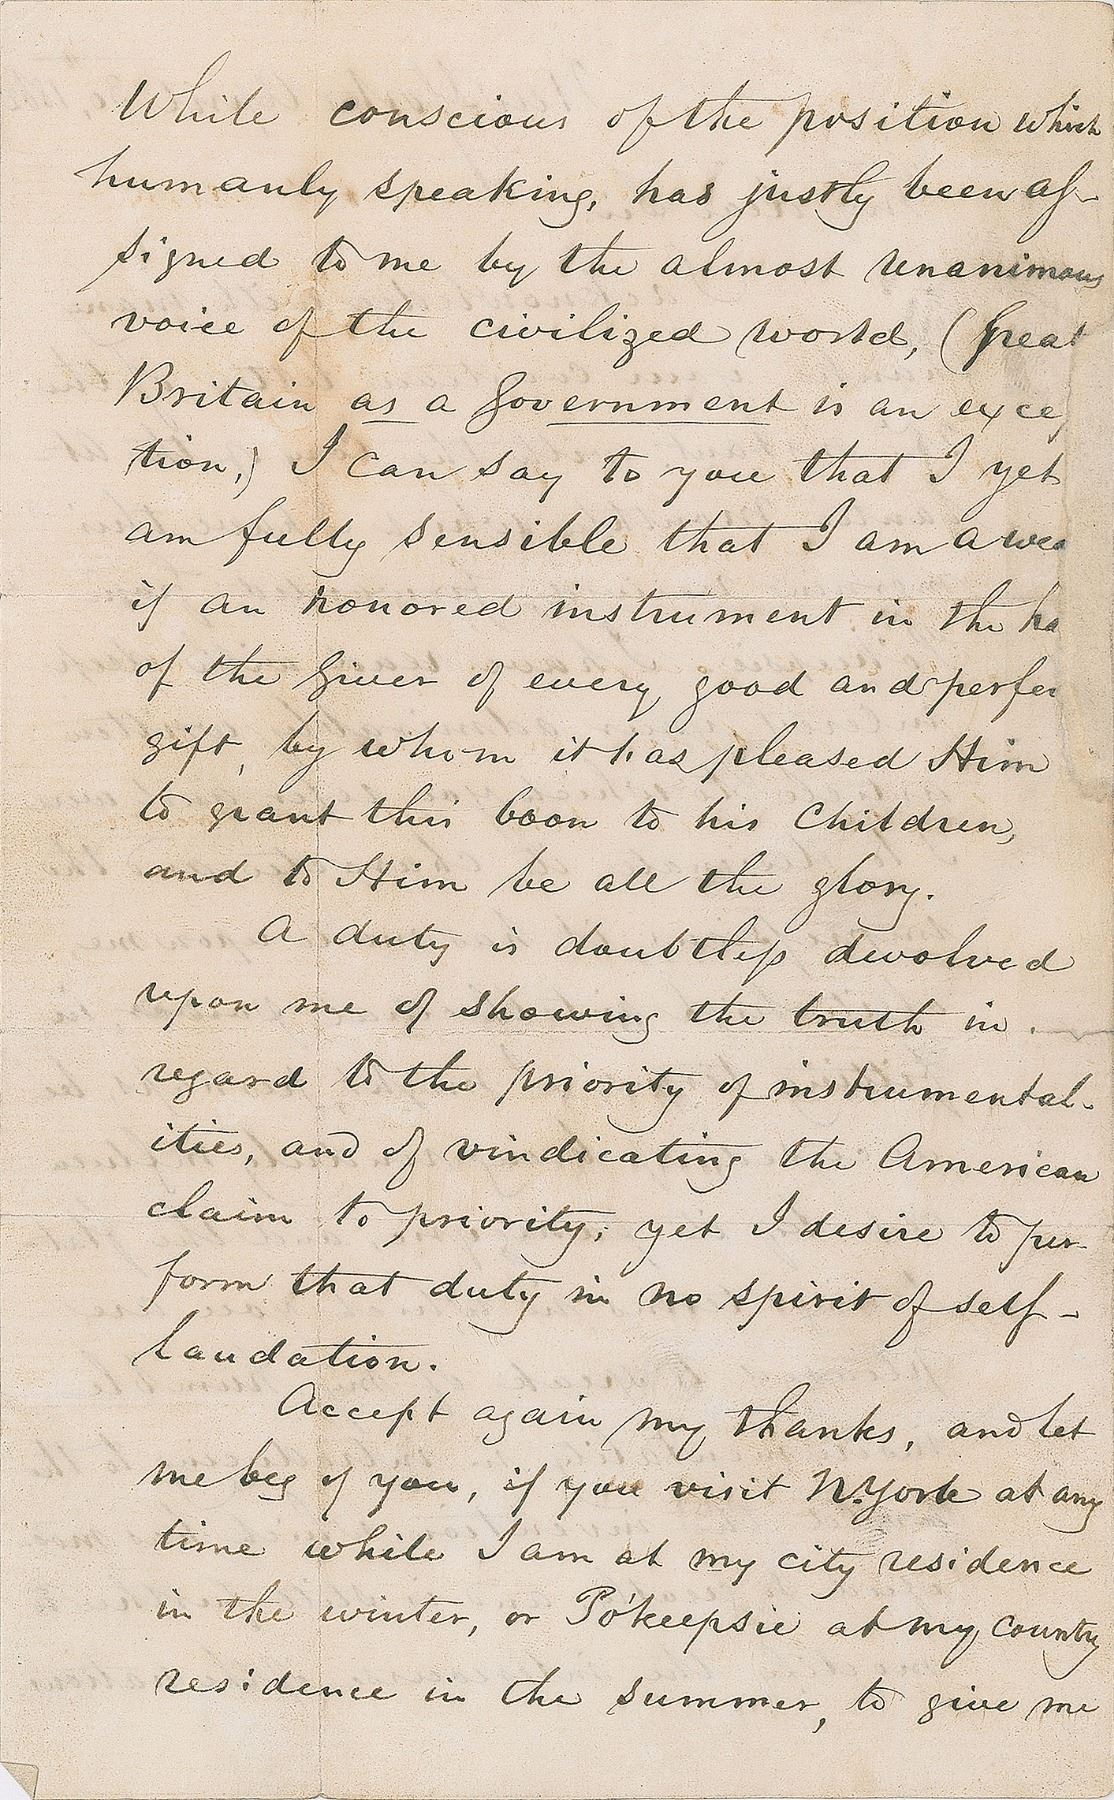 While conscious of the position which
humanly speaking, has justly been as-
signed to me by the almost unanimous
voice of the civilized world, (Great
Britain as a Government is an excep
tion,) I can say to you that I yet
am fully sensible that I am a wea
if an honored instrument in the ha
of the Giver of every good and perfec
gift, by whom it has pleased Him
to grant this boon to his children,
and to Him be all the glory.
A duty is doubtless devolved
upon me of showing the truth in
regard to the priority of instrumental-
ities, and of vindicating the American
claim to priority; yet I desire to per-
form that duty in no spirit of self-
laudation.
Accept again my thanks, and let
me beg of you, if you visit N. York at any
time while I am at my city residence
in the winter, or Po'keepsie at my country
residence in the summer, to give me